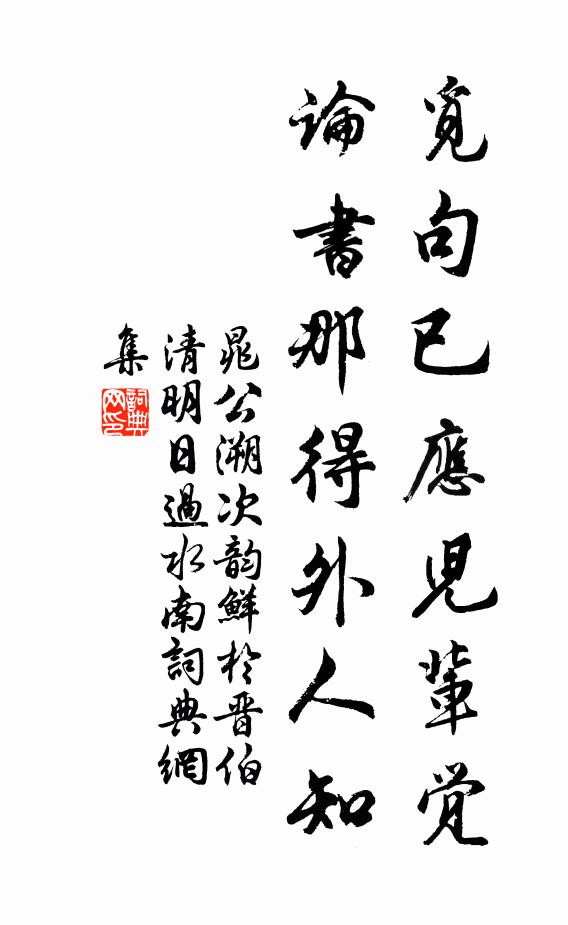 覓句已應兒輩覺
論書那得外人知
晁公溯次韵鮮於晋伯
清明日過水南詞典網
集
詞典網印